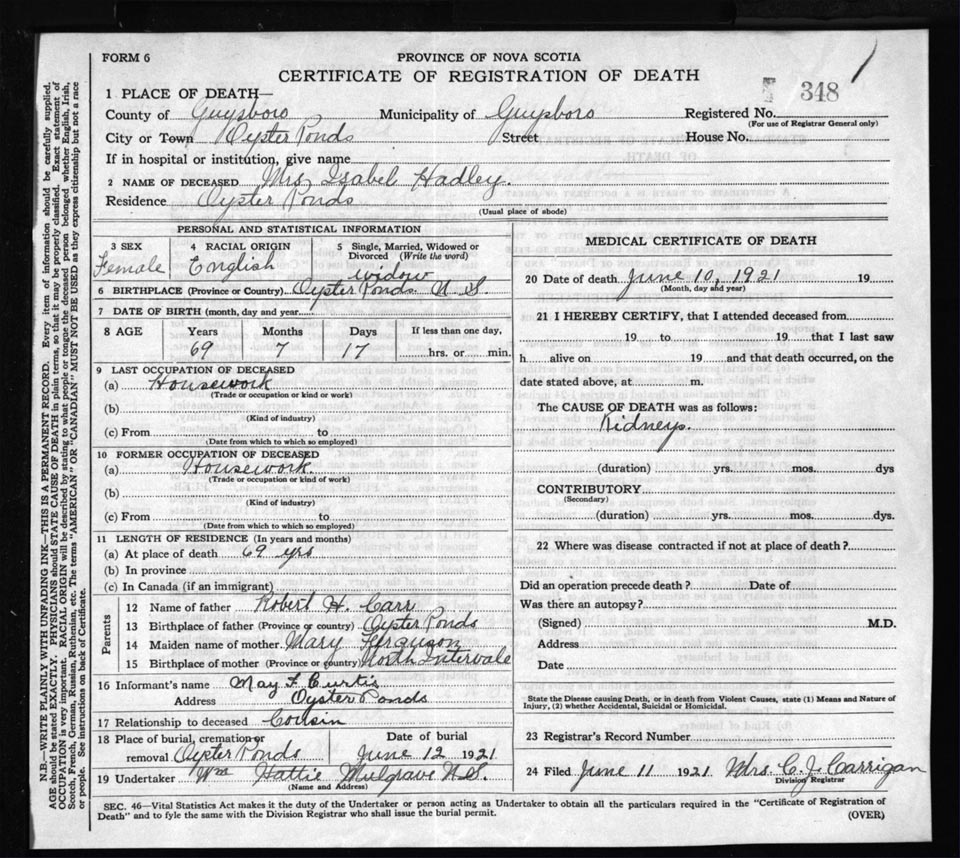 FORM 6
PROVINCE OF NOVA SCOTIA
CERTIFICATE OF REGISTRATION OF DEATH
348
1 PLACE OF DEATH—
County of Guysboro Municipality of Guysboro Registered No.
(For use of Registrar General only)
City or Town Oyster Ponds Street House No.
If in hospital or institution, give name
2 NAME OF DECEASED Mrs Isabel Hadley.
Residence Oyster Ponds
(Usual place of abode)
PERSONAL AND STATISTICAL INFORMATION
3 SEX 4 RACIAL ORIGIN 5 Single, Married, Widowed or
Divorced (Write the word)
Female English widow
6 BIRTHPLACE (Province or Country) Oyster Ponds N S
7 DATE OF BIRTH (month, day and year)
8 AGE Years Months Days If less than one day,
69 7 17 hrs. or min.
9 LAST OCCUPATION OF DECEASED
(a) Housework
(Trade or occupation or kind or work)
(b)
(Kind of industry)
(c) From to
(Date from which to which so employed)
10 FORMER OCCUPATION OF DECEASED
(a) Housework.
(Trade or occupation or kind or work)
(b)
(Kind of industry)
(c) From to
(Date from which to which so employed)
11 LENGTH OF RESIDENCE (In years and months)
(a) At place of death 69 yrs
(b) In province
(c) In Canada (if an immigrant)
Parents
12 Name of father Robert H. Carr
13 Birthplace of father (Province or country) Oyster Ponds
14 Maiden name of mother Mary Ferguson
15 Birthplace of mother (Province or country) North Intervale
16 Informant's name May F Curtis
Address Oyster Ponds
17 Relationship to deceased Cousin
18 Place of burial, cremation or Date of burial
removal Oyster Ponds June 12 1921
19 Undertaker Wm Hattie Mulgrave N.S.
(Name and Address)
MEDICAL CERTIFICATE OF DEATH
20 Date of death June 10, 1921 19
(Month, day and year)
21 I HEREBY CERTIFY, that I attended deceased from
19 to 19 that I last saw
h alive on 19 and that death occurred, on the
date stated above, at m.
The CAUSE OF DEATH was as follows:
Kidneys.
(duration) yrs. mos. dys
CONTRIBUTORY
(Secondary)
(duration) yrs. mos. dys.
22 Where was disease contracted if not at place of death?
Did an operation precede death? Date of
Was there an autopsy?
(Signed) M.D.
Address
Date
State the Disease causing Death, or in death from Violent Causes, state (1) Means and Nature of
Injury, (2) whether Accidental, Suicidal or Homicidal.
23 Registrar's Record Number
24 Filed June 11 1921 Mrs. C. J. Carrigan
Division Registrar
SEC. 46—Vital Statistics Act makes it the duty of the Undertaker or person acting as Undertaker to obtain all the particulars required in the "Certificate of Registration of
Death" and to fyle the same with the Division Registrar who shall issue the burial permit.
(OVER)
N.B.—WRITE PLAINLY WITH UNFADING INK—THIS IS A PERMANENT RECORD. Every item of information should be carefully supplied.
AGE should be stated EXACTLY. PHYSICIANS should STATE CAUSE OF DEATH in plain terms, so that it may be properly classified. Exact statement of
OCCUPATION is very important. RACIAL ORIGIN will be described by stating to what people or tongue the deceased person belonged whether English, Irish,
Scotch, French, German, Russian, Ruthenian, etc. The terms "AMERICAN" OR "CANADIAN" MUST NOT BE USED as they express citizenship but not a race
or people. See instructions on back of Certificate.